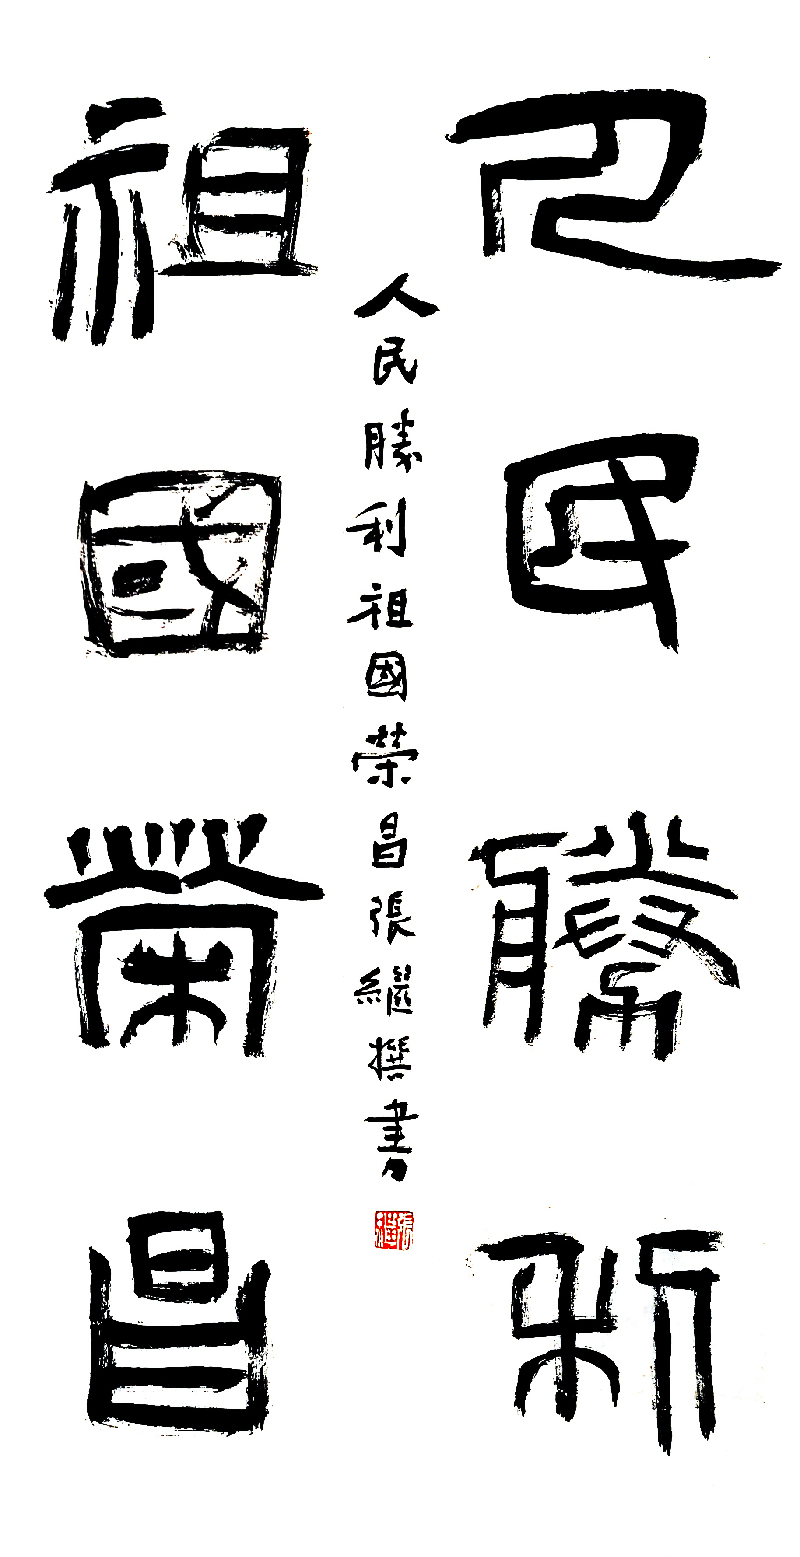 人民勝利
祖國榮昌
人民勝利祖國榮昌張繼撰書
張繼